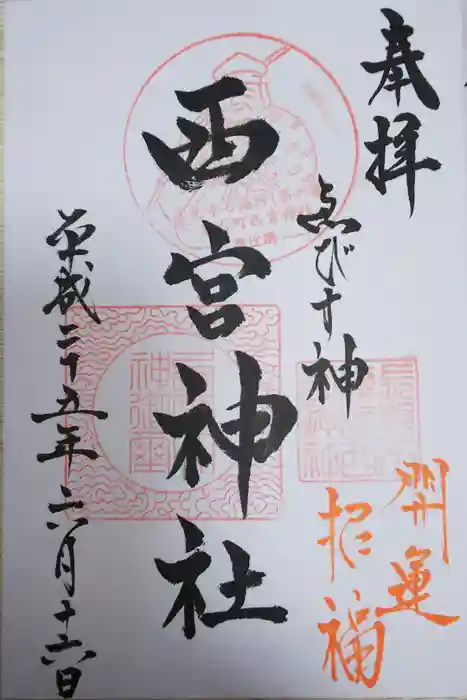 奉拝
ゑびす神
開運
招福
西宮神社
平成二十五年六月十六日